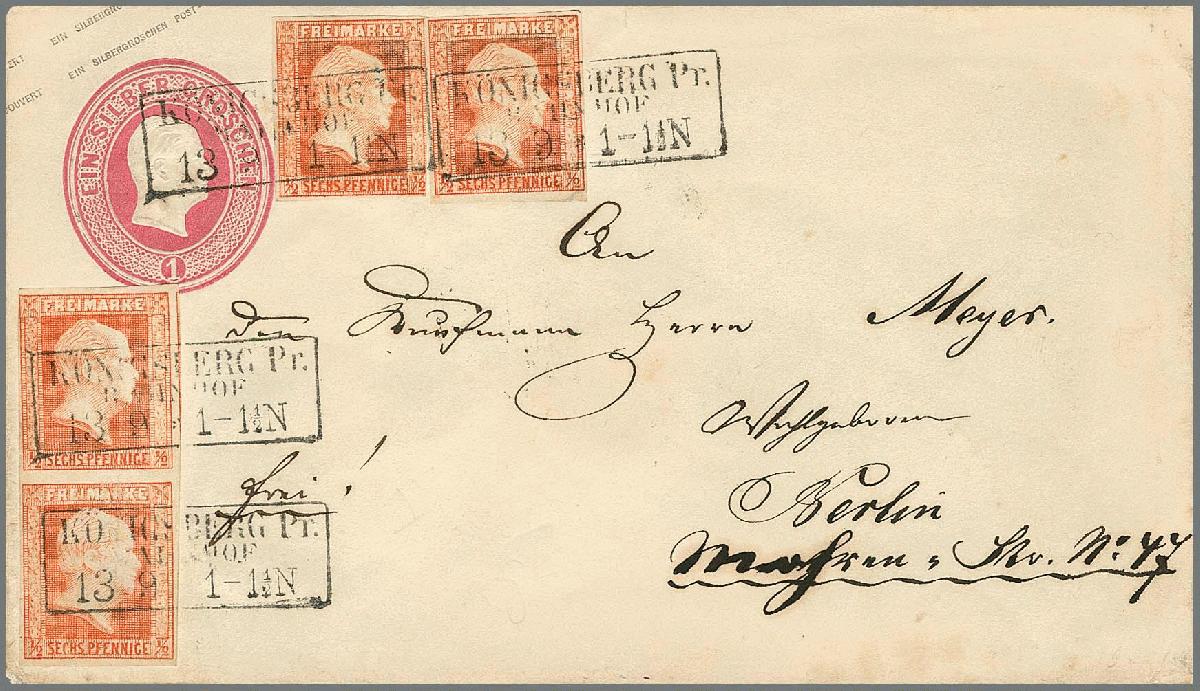 EIN SILBERGRO
EIN SILBERGROSCHEN POST-
ERT
OUVERT
EIN SILBER GROSCHEN
1
FREIMARKE
½ SECHS PFENNIGE ½
FREIMARKE
½ SECHS PFENNIGE ½
KÖNIGSBERG Pr.
BAHNHOF
13 1-1½N
KÖNIGSBERG Pr.
BAHNHOF
13 9 1-1½N
An
den Kaufmann Herrn Meyer.
Wohlgeboren
Berlin
Mohren-Str. No: 47
frei!
FREIMARKE
½ SECHS PFENNIGE ½
KÖNIGSBERG Pr.
BAHNHOF
13 9 1-1½N
FREIMARKE
½ SECHS PFENNIGE ½
KÖNIGSBERG Pr.
BAHNHOF
13 9 1-1½N